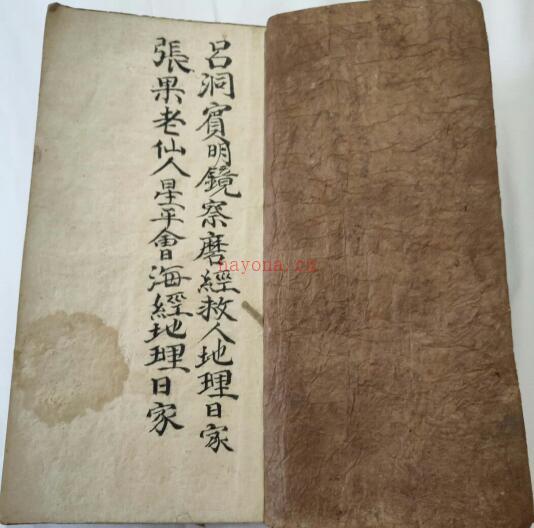 呂洞賓明鏡察磨經救人地理日家
張果老仙人星平會海經地理日家
nayona.cn